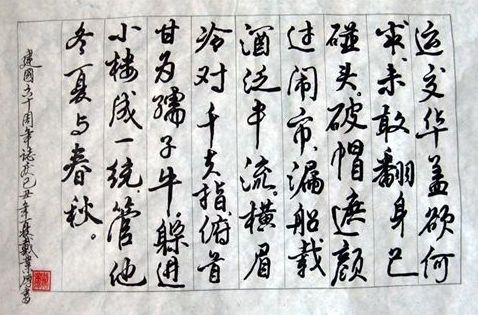 运交华盖欲何
求,未敢翻身已
碰头。破帽遮颜
过闹市,漏船载
酒泛中流。横眉
冷对千夫指,俯首
甘为孺子牛。躲进
小楼成一统,管他
冬夏与春秋。
建國六十周年誌慶己丑年夏戴業書